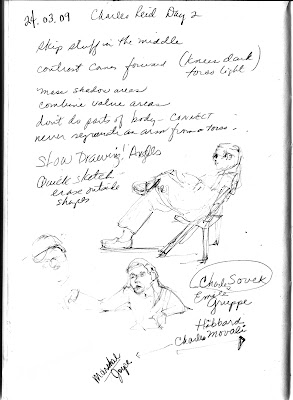 24.03.09 Charles Reid Day 2
skip stuff in the middle
contrast comes forward (knees dark
torso light)
mass shadow areas
combine value areas
don't do parts of body - CONNECT
never separate an arm from a torso.
Slow Drawing! Angles
Quick sketch -
erase outside
shapes
Charles Sovek
Emile
Gruppe
Hibbard
Charles Movalli
Marshall
Joyce